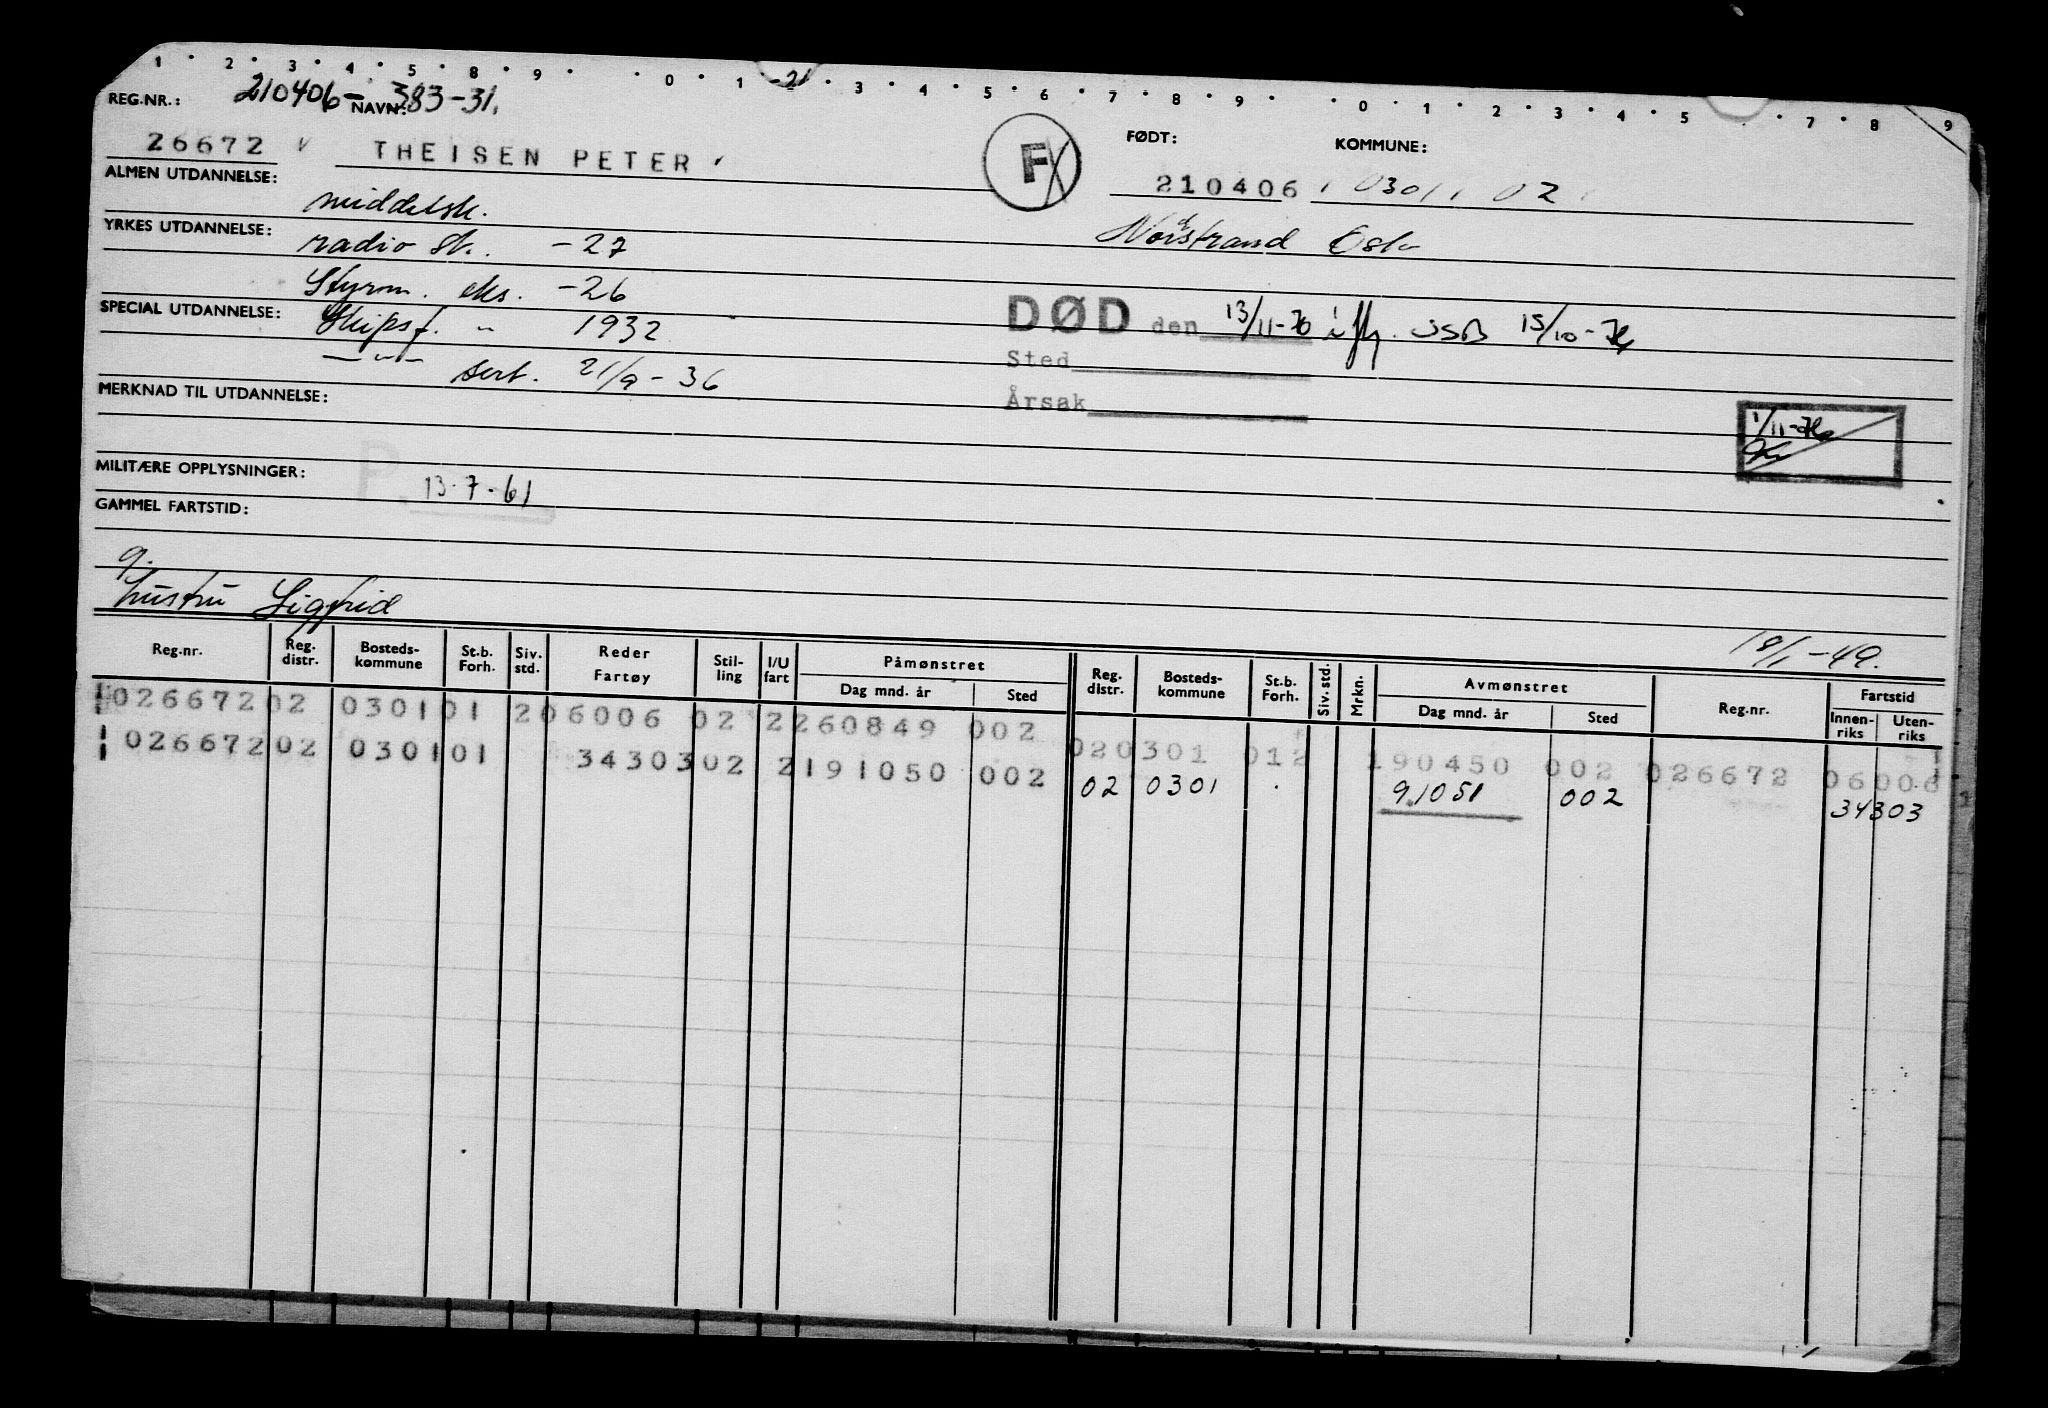 1 2 3 4 5 8 9 0 1 -21 3 4 5 6 7 8 9 0 1 2 3 4 5 7 8 9
REG.NR.: 210406-383-31. NAVN:
26672 V THEISEN PETER F FØDT: 210406 KOMMUNE: 0301 02
ALMEN UTDANNELSE: middelsk.
Nordstrand Oslo
YRKES UTDANNELSE: radio sk. -27
Styrm. eks. -26
SPECIAL UTDANNELSE: Skipsf. " 1932
DØD den 13/11-76 i flg. USB 15/10-76
Sted
—"— sert. 21/9-36
Årsak
MERKNAD TIL UTDANNELSE:
1/11-76
MILITÆRE OPPLYSNINGER:
P. 13-7-61
GAMMEL FARTSTID:
g.
hustru Sigfrid
18/1-49.
Reg.nr. Reg. distr. Bosteds-kommune St.b. Forh. Siv. std. Reder Fartøy Stil-ling I/U fart Påmønstret Dag mnd. år Sted Reg. distr. Bosteds-kommune St.b. Forh. Siv. std. Mrkn. Avmønstret Dag mnd. år Sted Reg.nr. Fartstid Innen-riks Uten-riks
026672 02 0301 01 2 06006 02 2 260849 002 02 0301 012 190450 002 026672 06006
026672 02 0301 01 34303 02 2 191050 002 02 0301 91051 002 34303